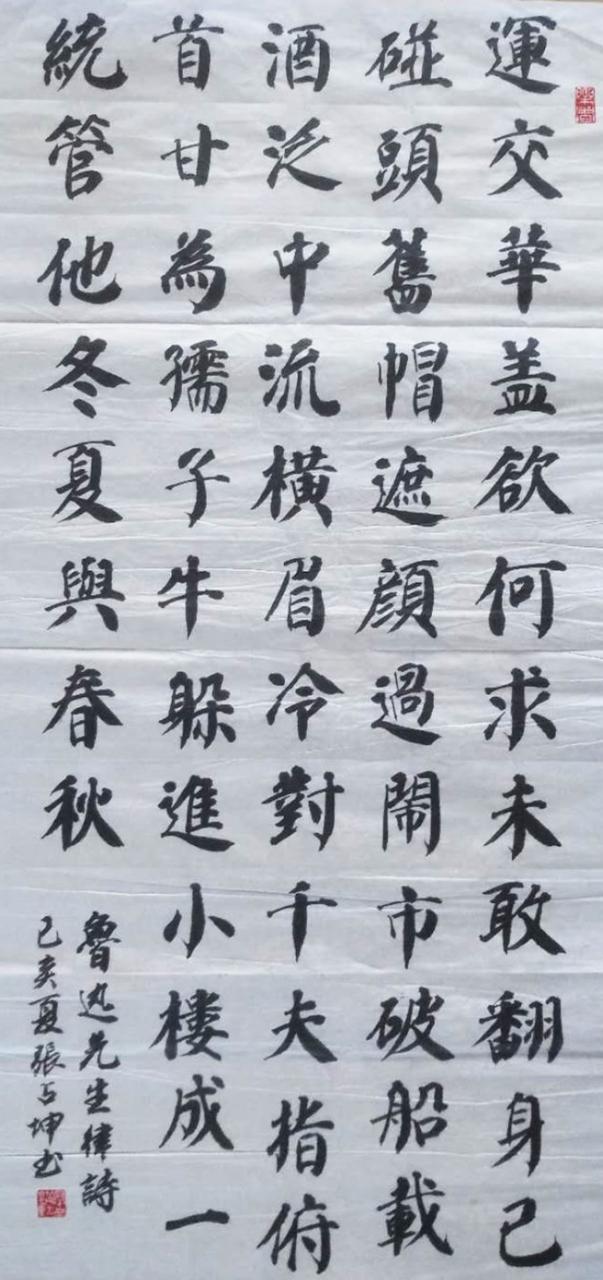 運交華盖欲何求未敢翻身已
碰頭舊帽遮顔過鬧市破船載
酒泛中流橫眉冷對千夫指俯
首甘為孺子牛躲進小樓成一
統管他冬夏與春秋
魯迅先生律詩
己亥夏張坤书